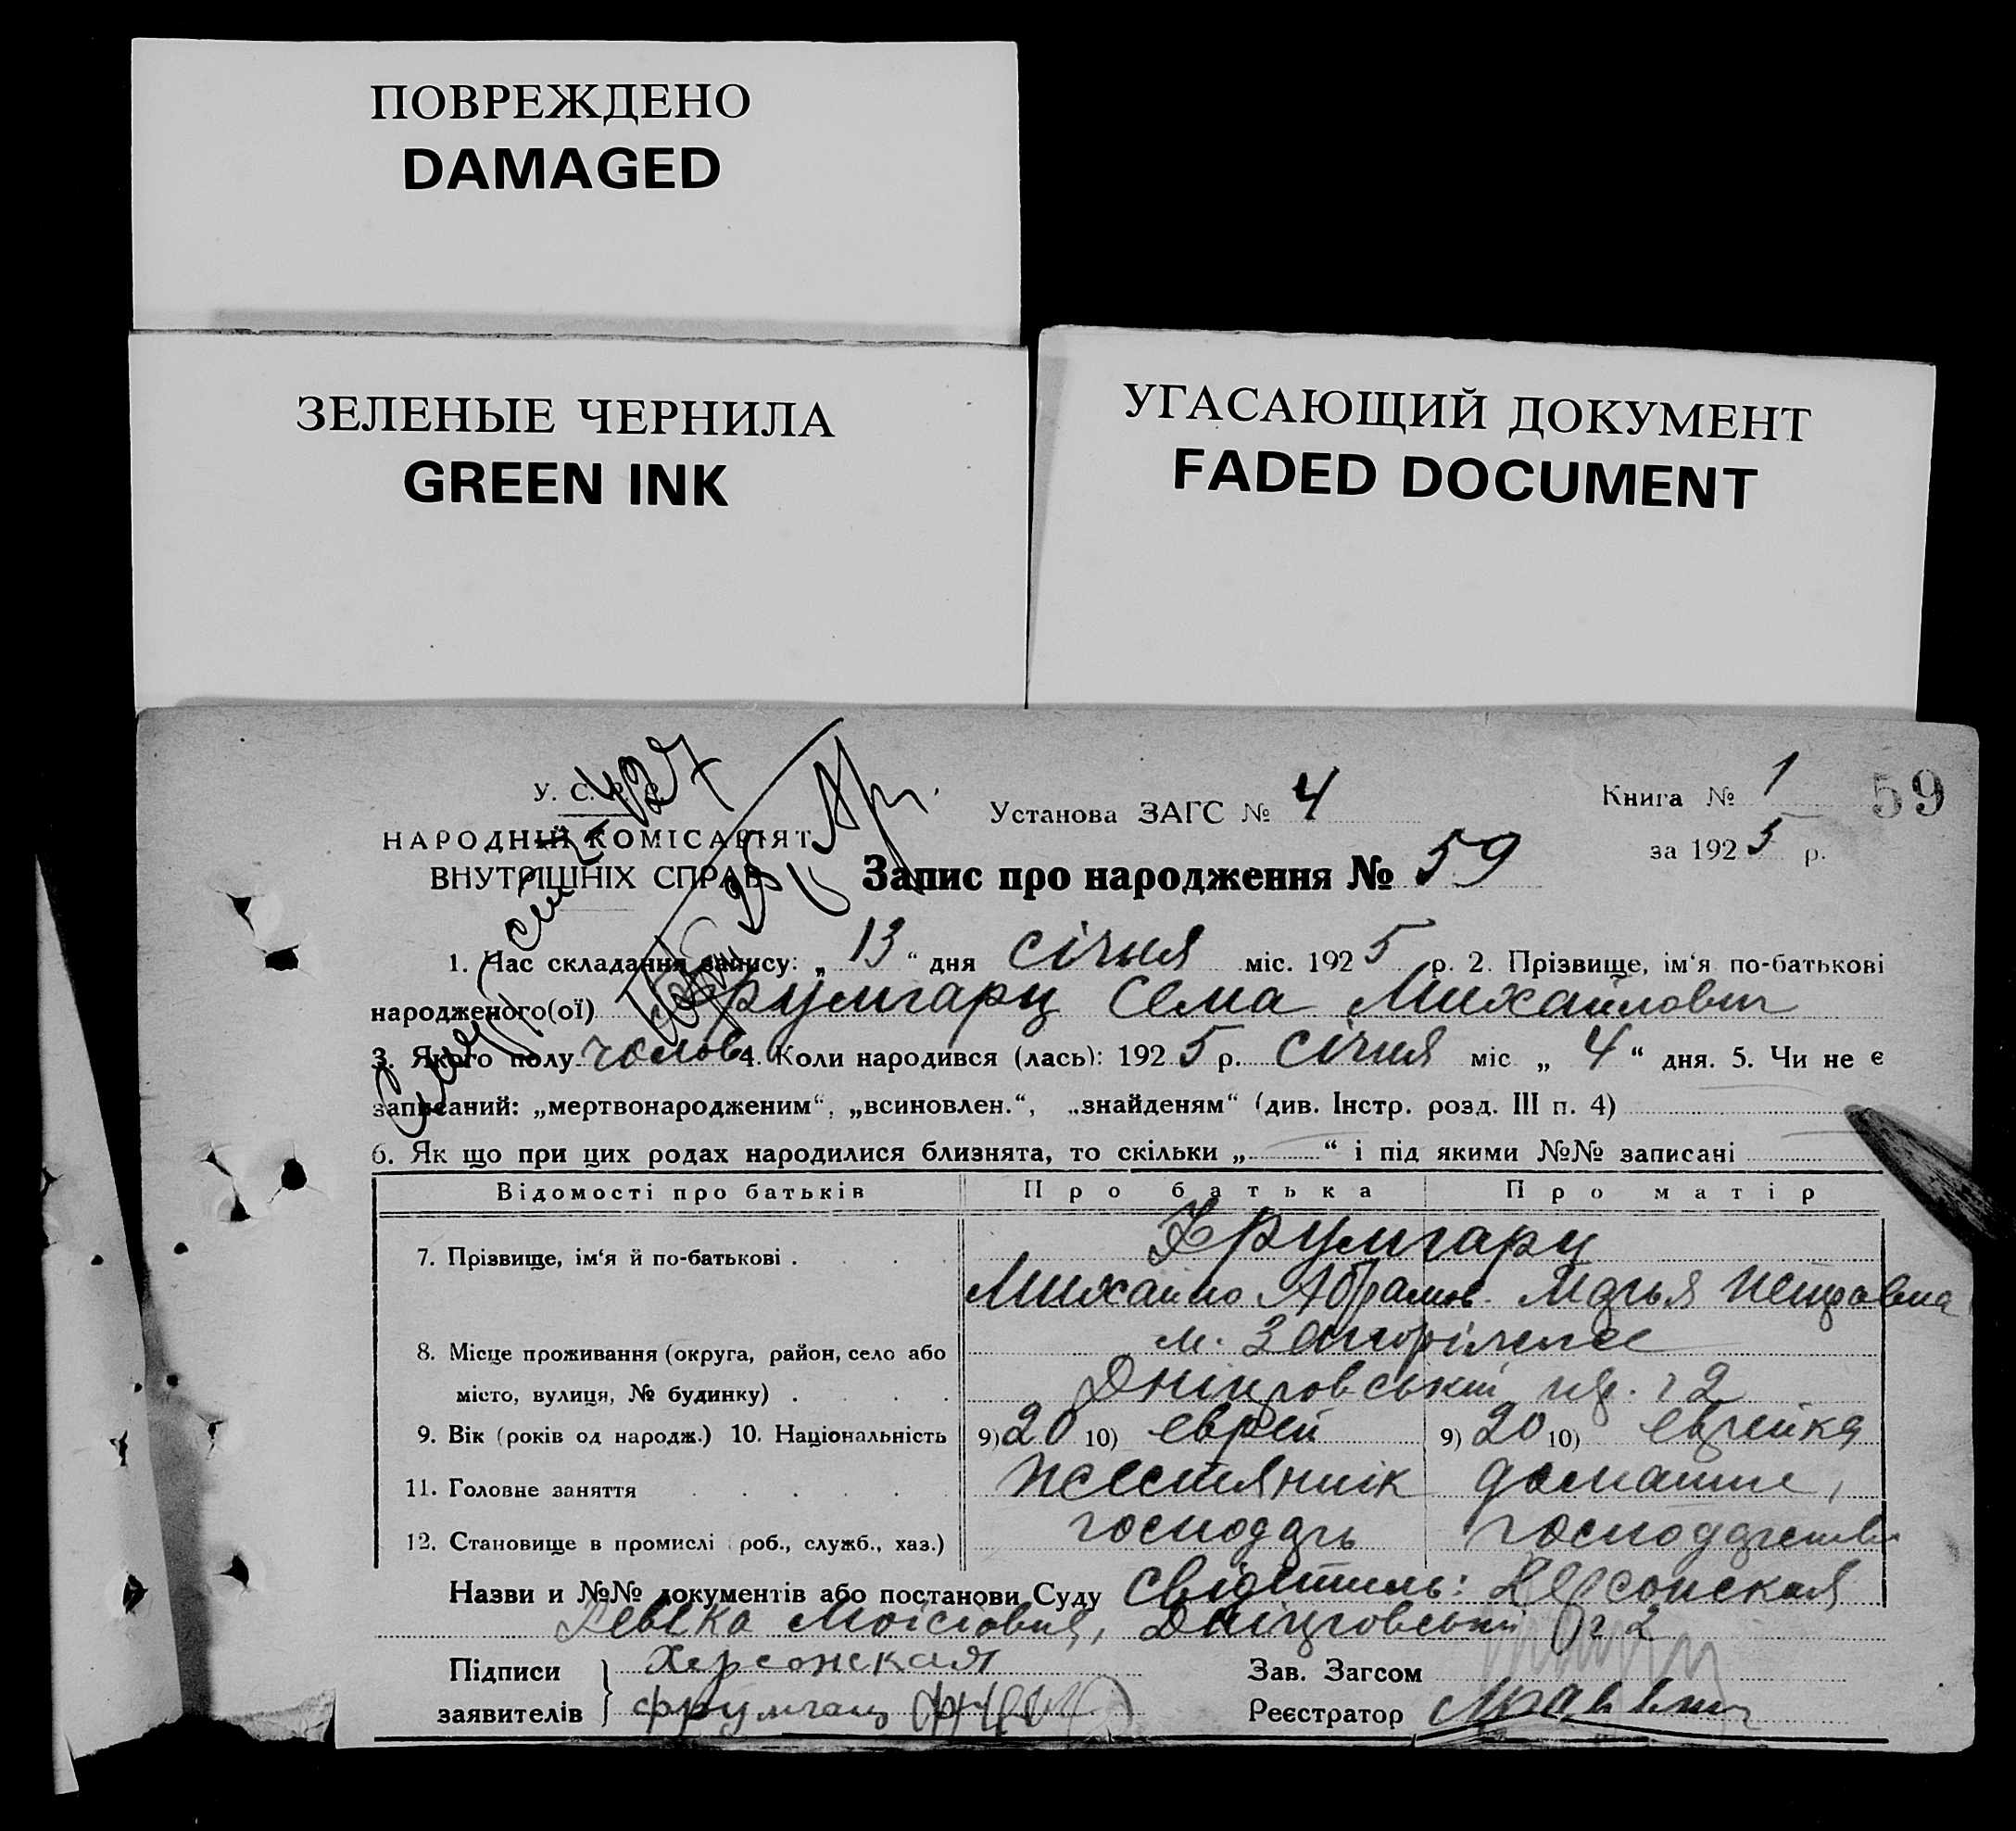 ПОВРЕЖДЕНО
DAMAGED
ЗЕЛЕНЫЕ ЧЕРНИЛА
GREEN INK
УГАСАЮЩИЙ ДОКУМЕНТ
FADED DOCUMENT
У. С.
НАРОДНІЙ КОМІСАРІЯТ
ВНУТРІШНІХ СПРАВ
Установа ЗАГС № 4
Книга № 1
59
за 1925 р.
Запис про народження № 59
1. Час складання запису: „13“ дня січня міс. 1925 р. 2. Прізвище, ім‘я по-батькові
народженого(ої) Фрумгарц Сема Михайлович
3. Якого полу чолов 4. Коли народився (лась): 1925 р. січня міс „4“ дня. 5. Чи не є
записаний: „мертвонародженим“, „всиновлен.“, „знайденям“ (див. Інстр. розд. III п. 4)
6. Як що при цих родах народилися близнята, то скільки „ “ і під якими №№ записані
Відомості про батьків Про батька Про матір
7. Прізвище, ім‘я й по-батькові . . . . Фрумгарц
Михайло Абрамов. Марья
8. Місце проживання (округа, район, село або м. Запоріжжє
місто, вулиця, № будинку) . . . . Дніпровський 2
9. Вік (років од народж.) 10. Національність 9) 20 10) еврей 9) 20 10) еврейка
11. Головне заняття . . . . . . жестянник домашнє,
12. Становище в промислі (роб., служб., хаз.) господарь
Назви и №№ документів або постанови Суду Свідитиль: Херсонская
Моісіовна, Дніпровський 2
Підписи Херсонская
заявителів Фрумгарц
Зав. Загсом
Реєстратор